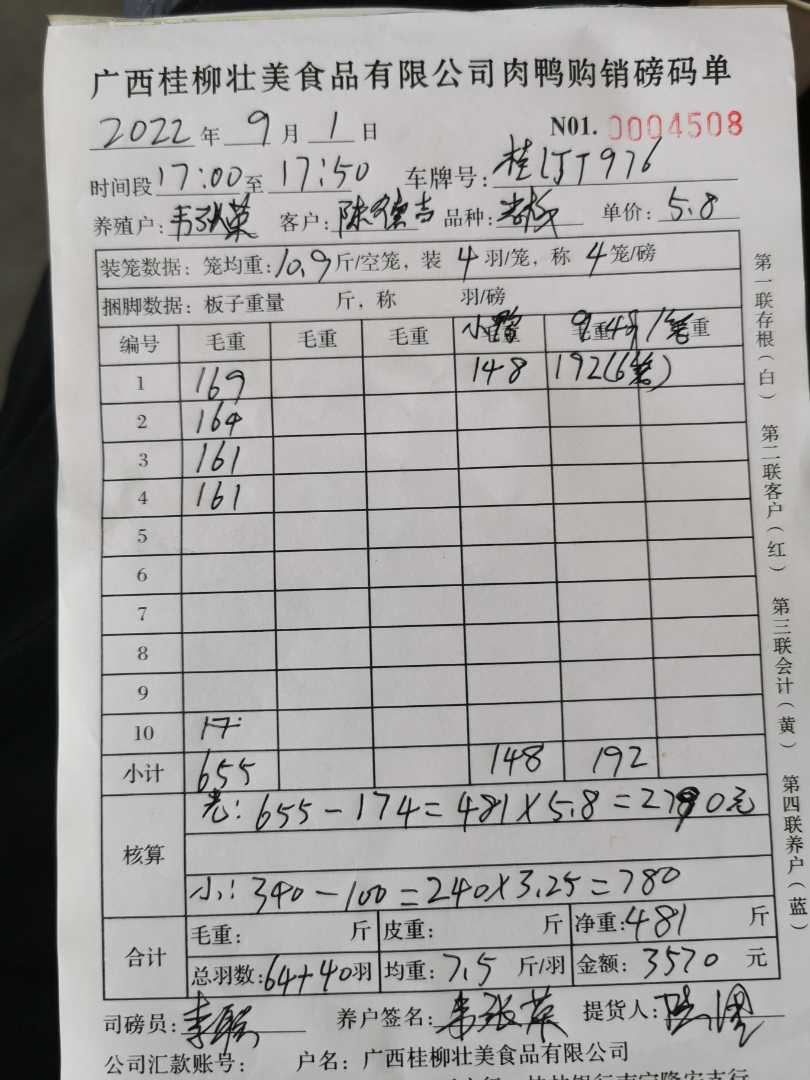 广西桂柳壮美食品有限公司肉鸭购销磅码单
2022年 9月 1日 N01. 0004508
时间段17:00至 17:50 车牌号: 桂 976
养殖户: 韦 客户: 陈德吉 品种: 单价: 5.8
装笼数据: 笼均重: 10.9斤/空笼, 装 4羽/笼, 称 4笼/磅
捆脚数据: 板子重量 斤, 称 羽/磅
编号 毛重 毛重 毛重 小 毛重 重
1 169 148 192(6笼)
2 164
3 161
4 161
5
6
7
8
9
10
小计 655 148 192
核算 655-174=481×5.8=2790元
小: 340-100=240×3.25=780
合计 毛重: 斤 皮重: 斤 净重: 481 斤
总羽数: 64+40羽 均重: 7.5 斤/羽 金额: 3570 元
司磅员: 李 养户签名: 韦 提货人:
公司汇款账号: 户名: 广西桂柳壮美食品有限公司
第一联存根(白) 第二联客户(红) 第三联会计(黄) 第四联养户(蓝)